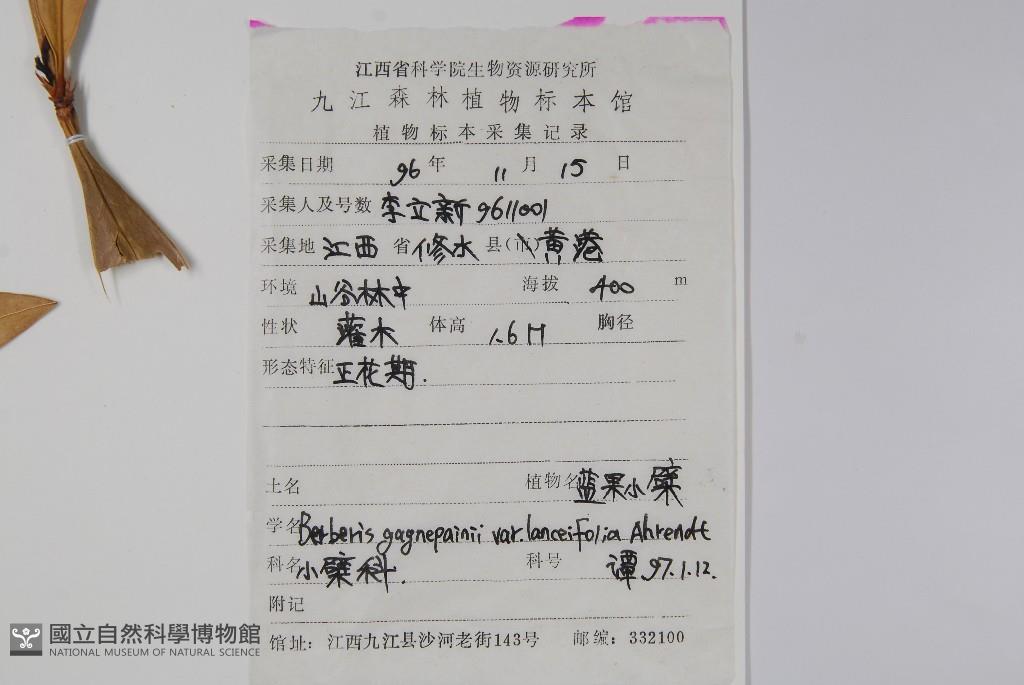 江西省科学院生物资源研究所
九江森林植物标本馆
植物标本采集记录
采集日期 96年 11月 15日
采集人及号数 李立新 9611001
采集地 江西 省 修水 县(市) 黄港
环境 山谷林中 海拨 400 m
性状 灌木 体高 1.6M 胸径
形态特征 正花期.
土名 植物名 蓝果小檗
学名 Berberis gagnepainii var. lanceifolia Ahrendt
科名 小檗科. 科号 谭 97.1.12.
附记
馆址: 江西九江县沙河老街143号 邮编: 332100
國立自然科學博物館
NATIONAL MUSEUM OF NATURAL SCIENCE